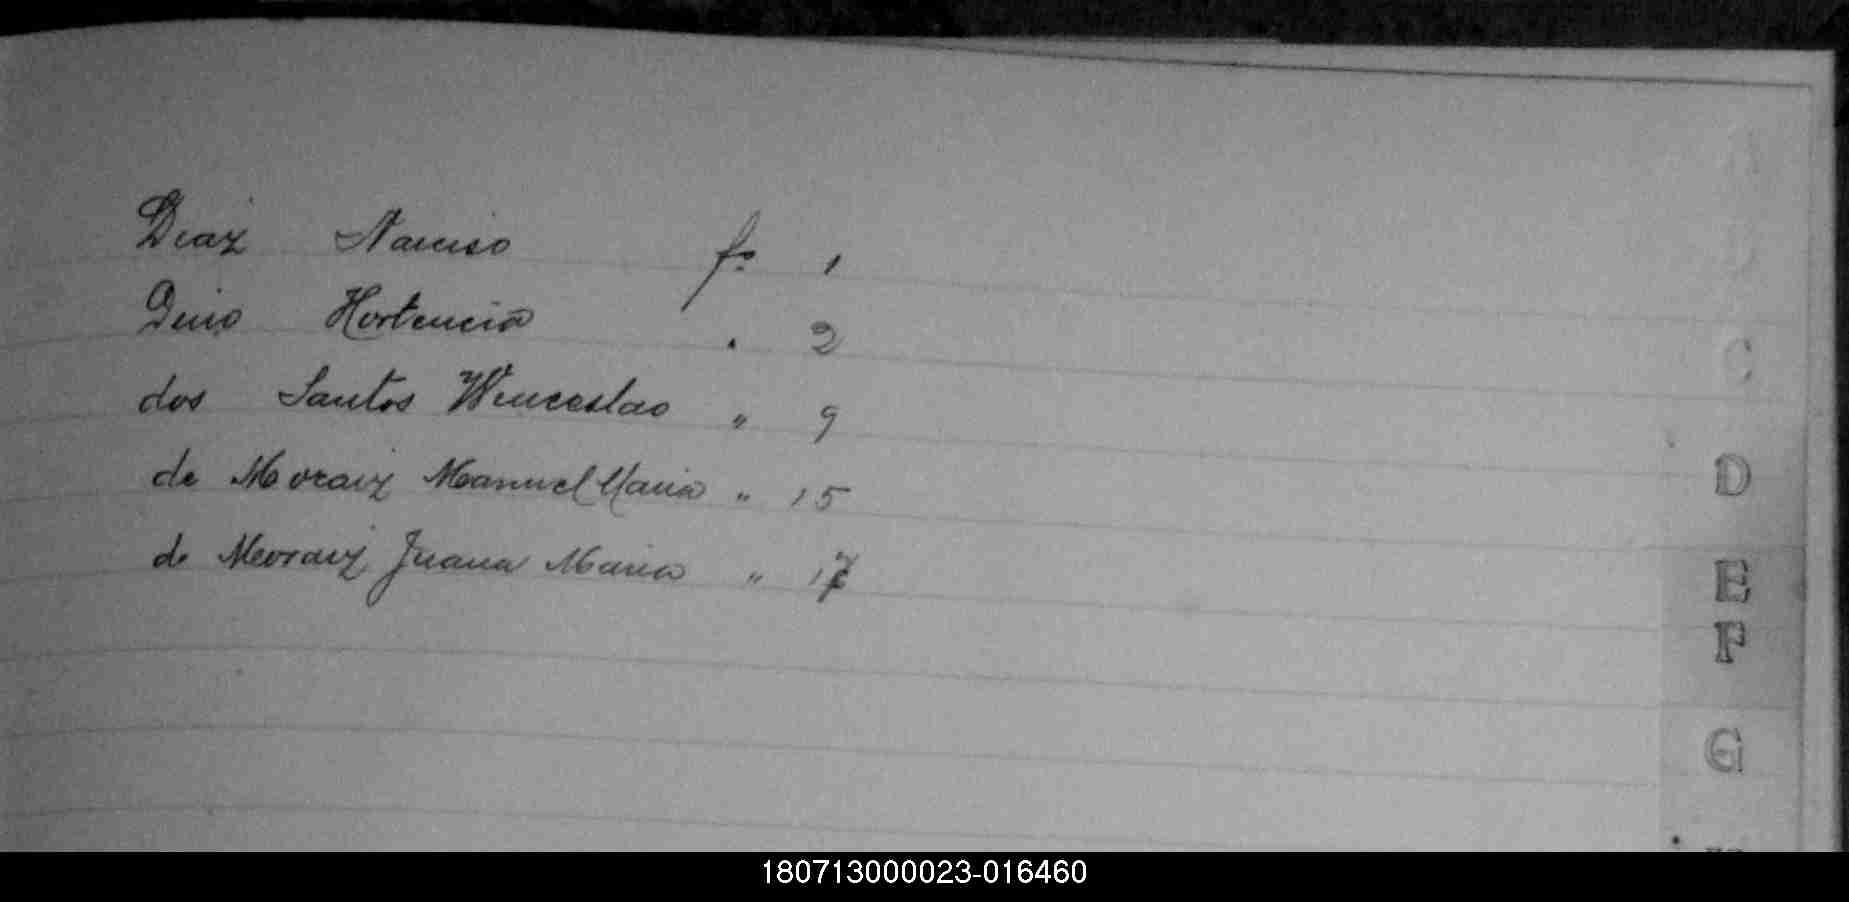 Diaz Narciso fº 1
Dino Hortencia . 2
dos Santos Wenceslao " 9
de Moraiz Manuel Maria " 15
de Moraiz Juana Maria " 17
C
D
E
F
G
180713000023-016460